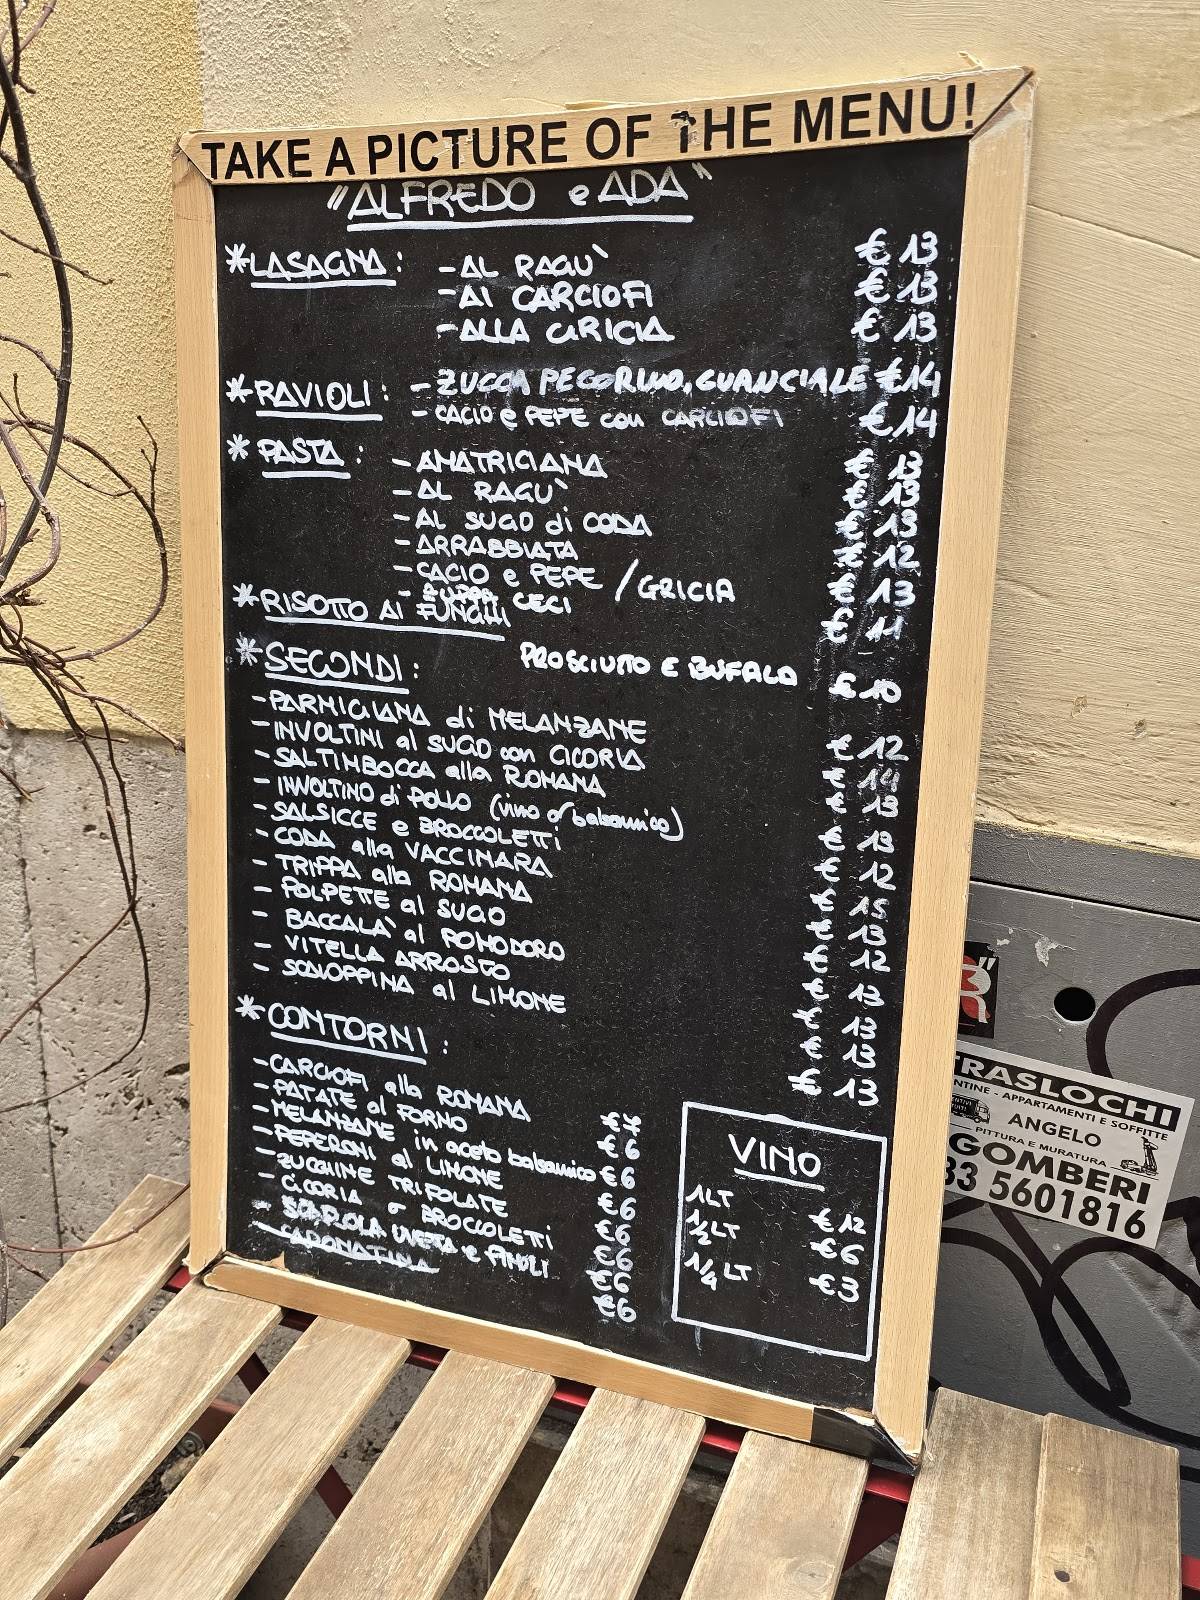 TAKE A PICTURE OF THE MENU!
"ALFREDO e ADA"
*LASAGNA: - AL RAGU` € 13
- AI CARCIOFI € 13
- ALLA GRICIA € 13
*RAVIOLI: - ZUCCA PECORINO, GUANCIALE €14
- CACIO e PEPE con CARCIOFI €14
* PASTA: - AMATRICIANA € 13
- AL RAGU` € 13
- AL SUGO di CODA € 13
- ARRABBIATA € 12
- CACIO e PEPE / GRICIA € 13
- ZUPPA CECI € 11
*RISOTTO AI FUNGHI
PROSCIUTTO E BUFALA € 10
*SECONDI:
- PARMIGIANA di MELANZANE € 12
- INVOLTINI al SUGO con CICORIA € 14
- SALTIMBOCCA alla ROMANA € 13
- INVOLTINO di POLLO (vino o balsamico) € 13
- SALSICCE e BROCCOLETTI € 12
- CODA alla VACCINARA € 15
- TRIPPA alla ROMANA € 13
- POLPETTE al SUGO € 12
- BACCALA` al POMODORO € 13
- VITELLA ARROSTO € 13
- SCALOPPINA al LIMONE € 13
€ 13
*CONTORNI:
- CARCIOFI alla ROMANA
- PATATE al FORNO €6
- MELANZANE in aceto balsamico €6
- PEPERONI al LIMONE €6
- ZUCCHINE TRIFOLATE €6
- CICORIA o BROCCOLETTI €6
UVETTA e PINOLI €6
€6
VINO
1LT € 12
1/2 LT €6
1/4 LT €3
TRASLOCHI
CANTINE - APPARTAMENTI E SOFFITTE
ANGELO
PITTURA E MURATURA
GOMBERI
33 5601816